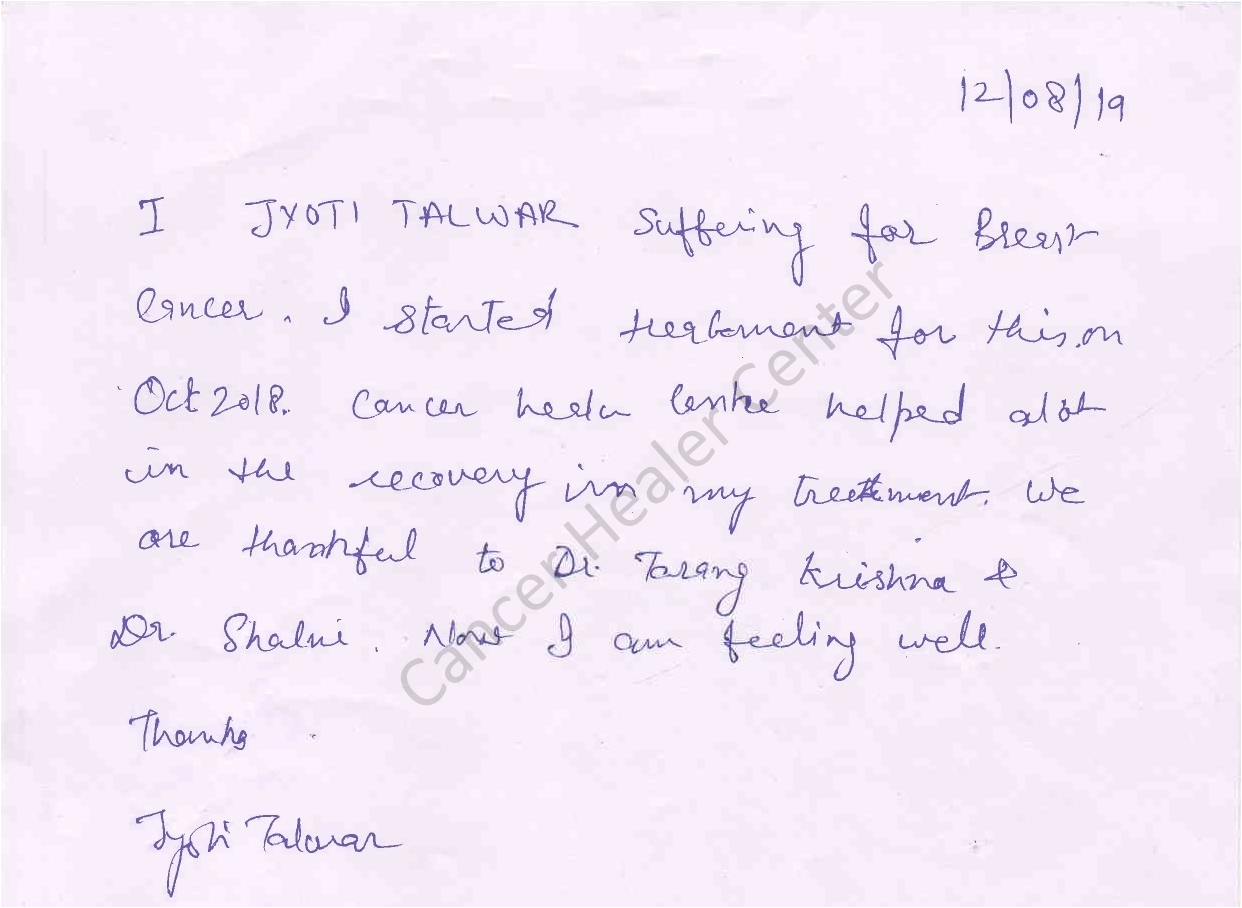 12/08/19
I JYOTI TALWAR Suffering for Breast
Cancer. I started treatement for this on
Oct 2018. Cancer healer Centre helped alot
in the recovery in my treetment. We
are thankful to Dr. Tarang Krishna &
Dr. Shalni. Now I am feeling well.
Thanks
Jyoti Talwar
CancerHealer Center